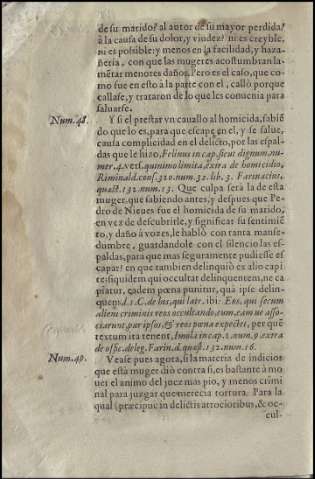 de su marido? al autor de su mayor perdida?
à la causa de su dolor, y viudez? ni es creyble,
ni es possible: y menos en la facilidad, y haza-
ñeria, con que las mugeres acostumbran la-
mẽtar menores daños. Pero es el caso, que co-
mo fue en esto à la parte con el, callò porque
callasse, y trataron de lo que les conuenia para
saluarse.
Num. 48. Y si el prestar vn cauallo al homicida, sabiẽ
do que lo es, para que escape en el, y se salue,
causa complicidad en el delicto, por las espal-
das que le hizo, Felinus in cap. sicut dignum, nu-
mer. 4. vers. quinimo limita, extra de homicidio,
Riminald. cons. 310. num. 32. lib. 3. Farinacius,
quæst. 132. num. 13. Que culpa serà la de esta
muger, que sabiendo antes, y despues que Pe-
dro de Nieues fue el homicida de su marido,
en vez de descubrirle, y significar su sentimiẽ
to, y daño à vozes, le hablò con tanta manse-
dumbre, guardandole con el silencio las es-
paldas, para que mas seguramente pudiesse es
capar? en que tambien delinquiò ex alio capi-
te: siquidem qui occultat delinquentem, ne ca
piatur, eadem pœna punitur, quà ipse delin-
quens, d.l. 1. C. de his, qui latr. ibi: Eos, qui secum
alieni criminis reos occultando, eum, eam ue asso-
ciarunt, par ipsos, & reos pœna expectet, per quẽ
textum ita tenent, Imola in cap. 1. num. 9. extra
de offic. deleg. Farin. d. quæst. 132. num. 16.
Num. 49. Vease pues agora, si la materia de indicios
que està muger diò contra si, es bastante à mo
uer el animo del juez mas pio, y menos crimi-
nal para juzgar que merecia tortura. Para la
qual (præcipuè in delictis atrocioribus, & oc-
cul-